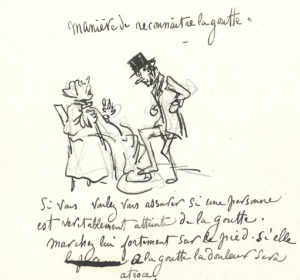 manière de reconnaitre la goutte.
Si vous voulez vous assurer si une personne
est veritablement atteinte de la goutte.
marchez lui fortement sur le pied. s'elle
a la goutte la douleur sera
atroce